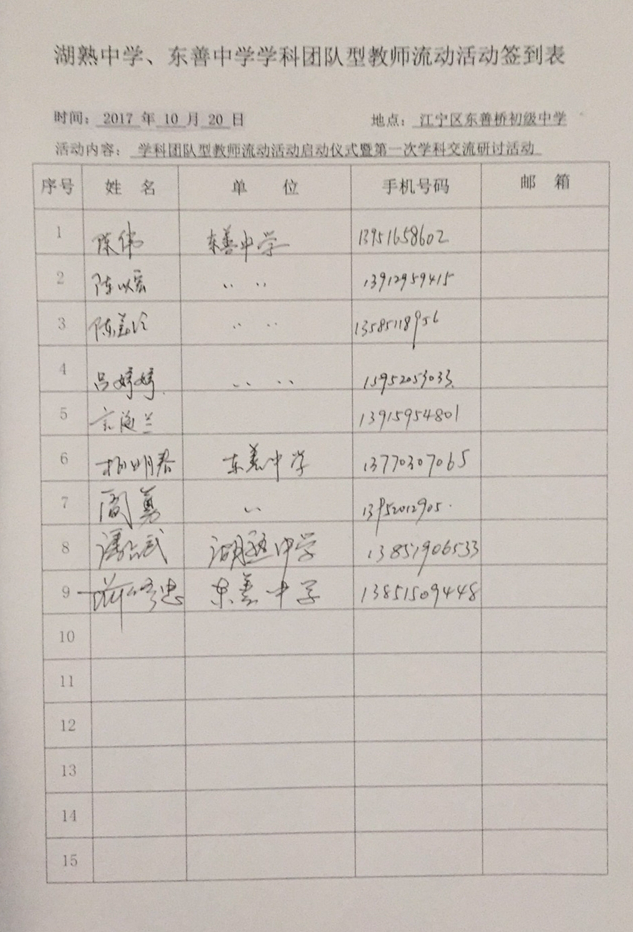 湖熟中学、东善中学学科团队型教师流动活动签到表
时间: 2017 年 10 月 20 日 地点: 江宁区东善桥初级中学
活动内容: 学科团队型教师流动活动启动仪式暨第一次学科交流研讨活动
序号 姓 名 单 位 手机号码 邮 箱
1 陈伟 东善中学 13951658602
2 陈以宏 〃 〃 13912959415
3 〃 〃 13585118956
4 吕婷婷 〃 〃 15952053033
5 13915954801
6 杨明春 东善中学 13770307065
7 阎勇 〃 13952012905
8 潘云武 湖熟中学 13851906533
9 东善中学 13851509448
10
11
12
13
14
15